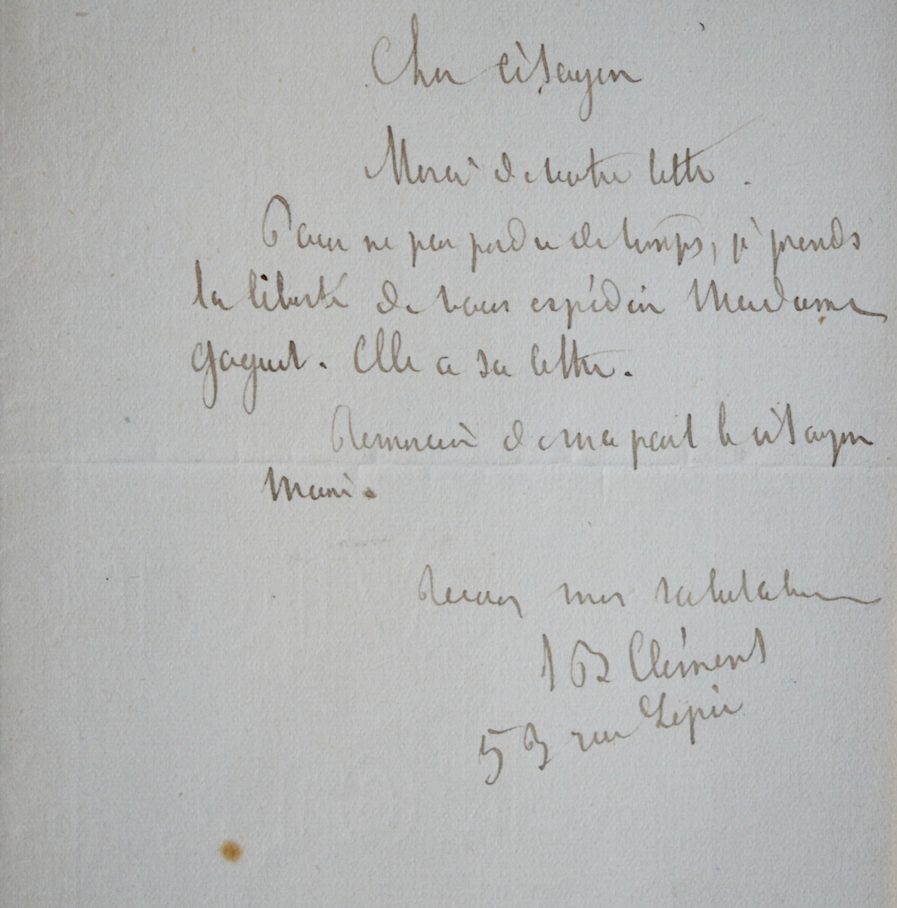 Cher citoyen
Merci de votre lettre.
Pour ne pas perdre de temps, je prends
la liberté de vous expédier Madame
Gaguet. Elle a sa lettre.
Remercier de ma part le citoyen
Recevez mes salutations
J B Clément
53 rue Lepic